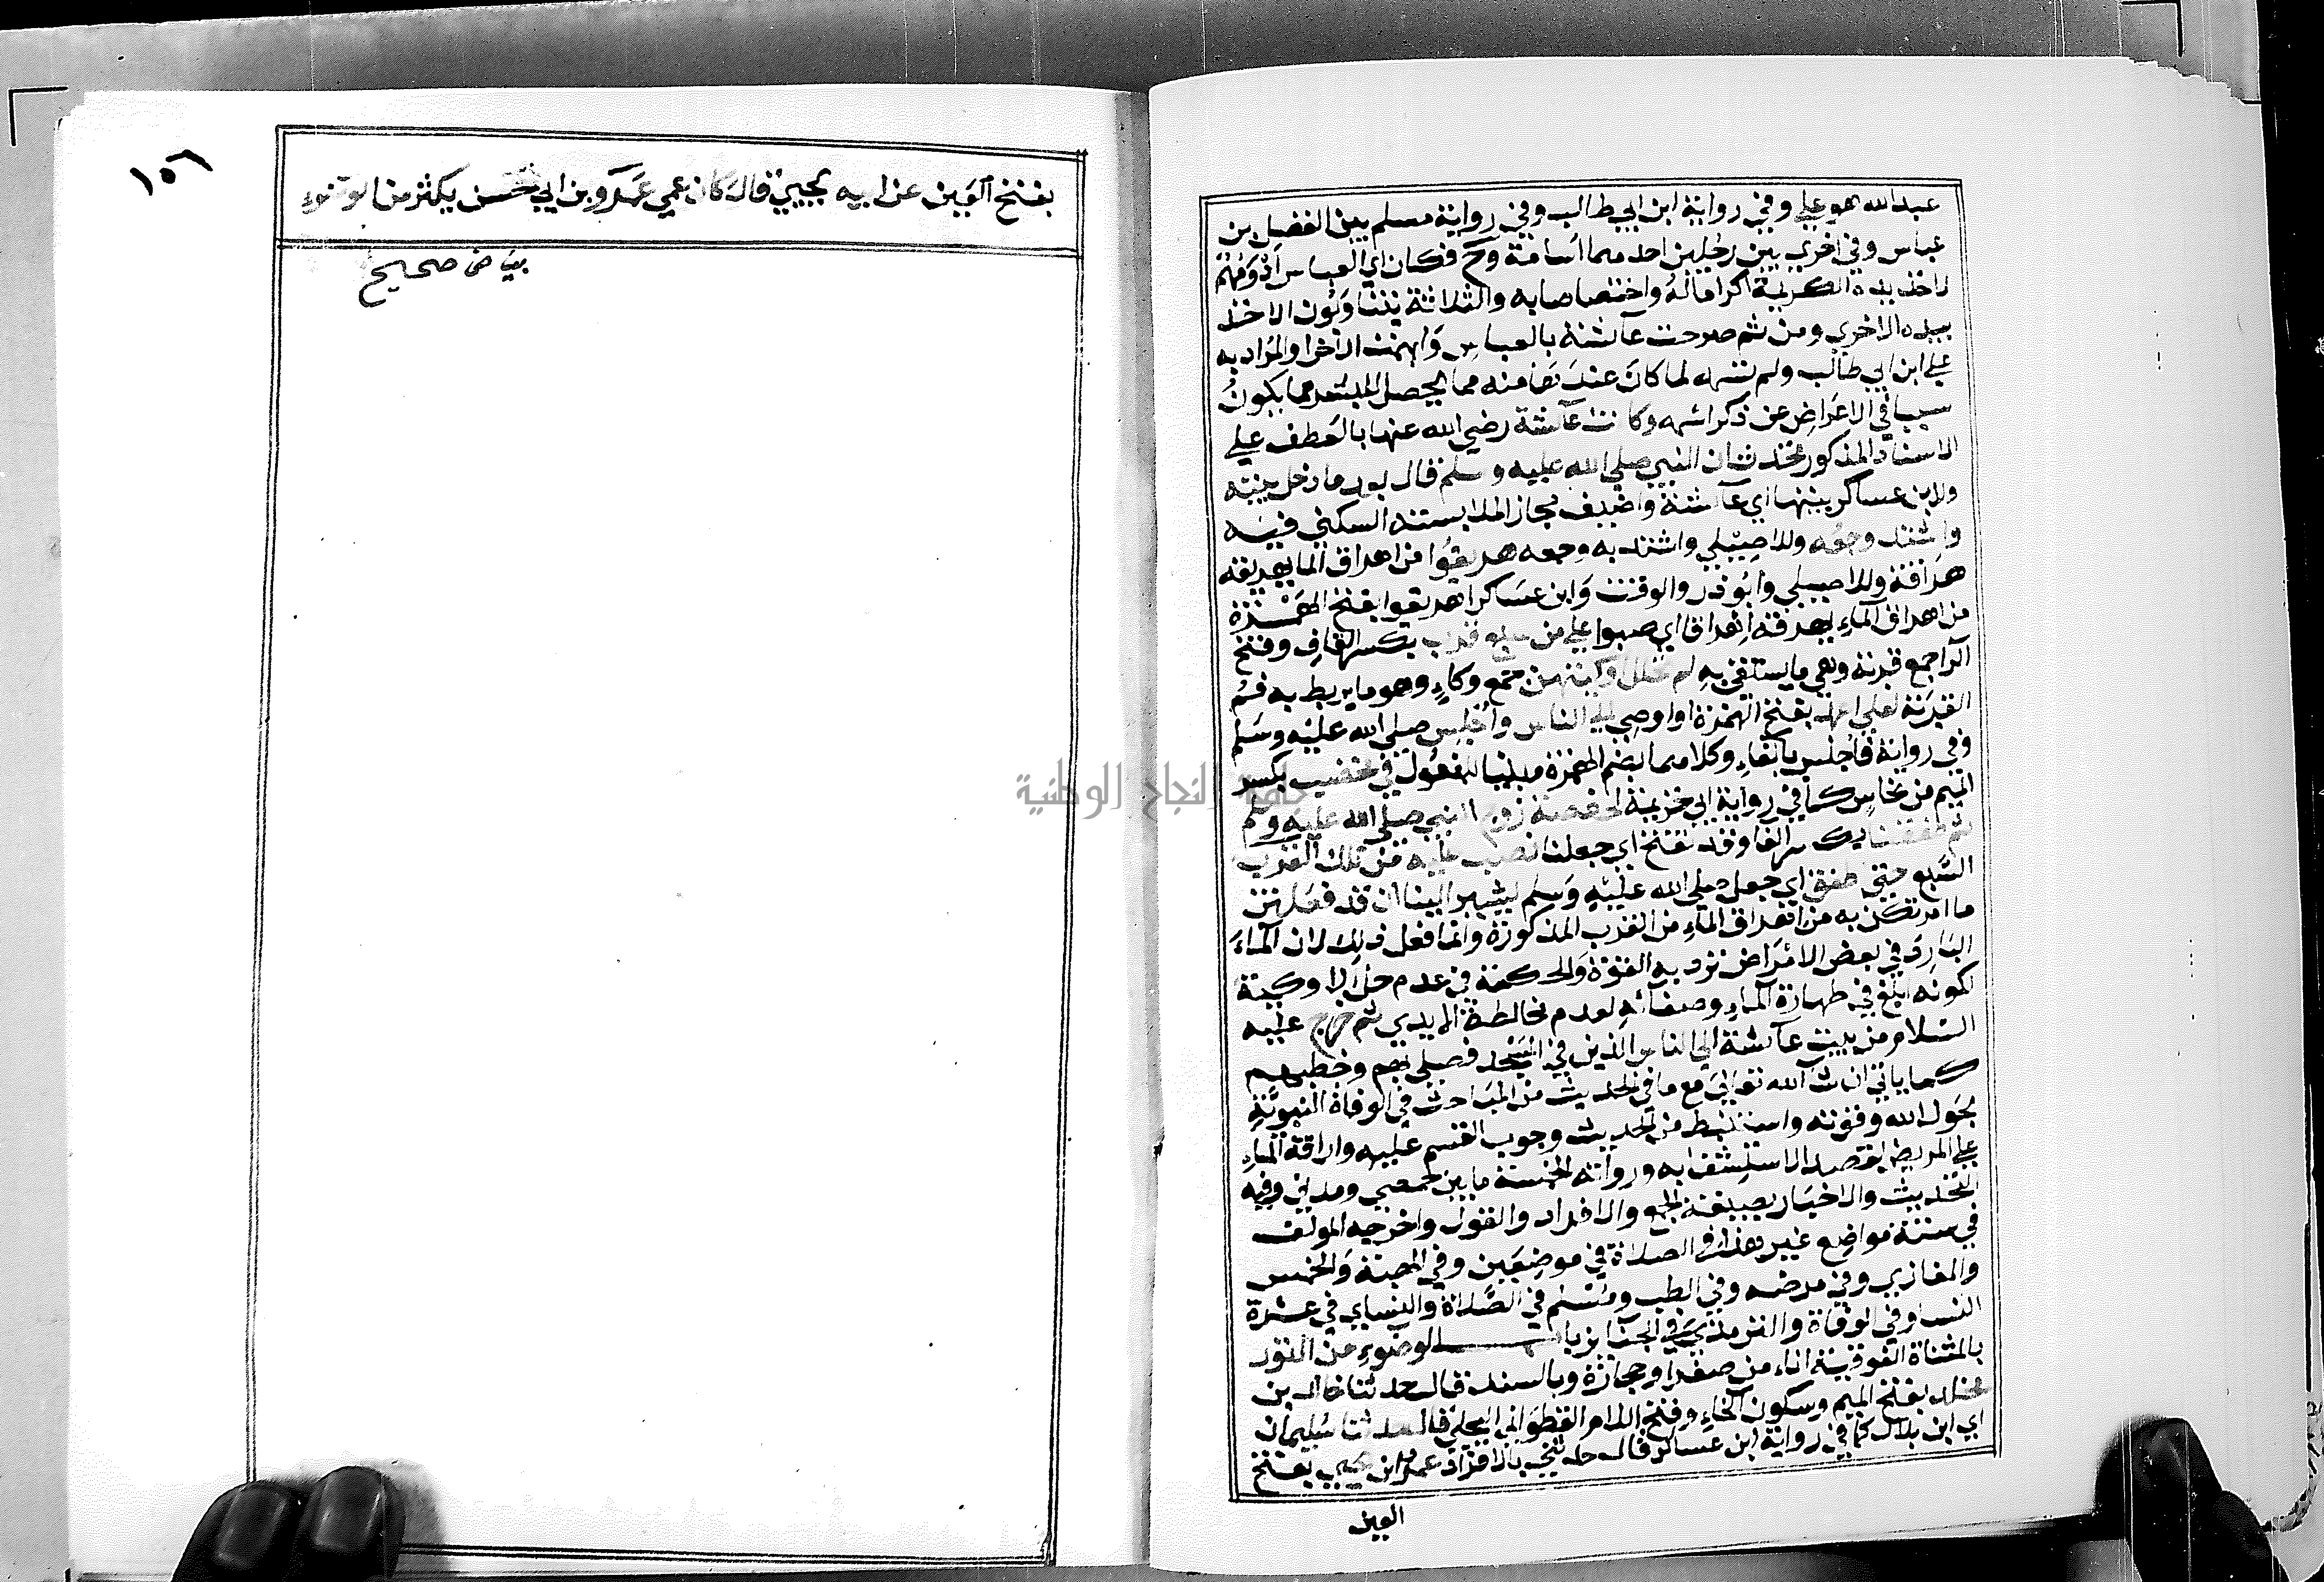 عبد الله هو علي وفي رواية ابن ابي طالب وفي رواية مسلم بين الفضل بن
عباس وفي اخري بين رجلين احدهما اسامة وح فكان اي العباس ادومهم
لاخذ يده الكريمة اكراما له واختصاصا به والثلاثة يتناوبون الاخذ
بيده الاخري ومن ثم صرحت عائشة بالعباس وابهمت الاخر والمراد به
علي ابن ابي طالب ولم تسمه لما كان عندها منه مما يحصل للبشر مما يكون
سببا في الاعراض عن ذكر اسمه وكانت عائشة رضي الله عنها بالعطف علي
الاسناد المذكور تحدث ان النبي صلي الله عليه وسلم قال بعد ما دخل بيته
ولابن عساكر بيتها اي عائشة واضيف مجازا لملابسته السكني فيه
واشتد وجعه وللاصيلي واشتد به وجعه هريقوا من اهراق الما يهريقه
هراقة وللاصيلي وابو ذر والوقت وابن عساكر اهريقوا بفتح الهمزة
من اهراق الماء يهرقه اهراقا اي صبوا علي من سبع قرب بكسر القاف وفتح
الراجمع قربة وهي ما يستقي به لم تحلل اوكيتهن جمع وكاء وهو ما يربط به فم
القربة لعلي اعهد بفتح الهمزة اي اوصي الي الناس واجلس صلي الله عليه وسلم
وفي رواية فاجلس بالفاء وكلاهما بضم الهمزة مبنيا للمفعول في مخضب بكسر
الميم من نحاس كما في رواية ابي خزيمة لحفصة زوج النبي صلي الله عليه وسلم
ثم طفقنا بكسر الفا وقد تفتح اي جعلنا نصب عليه من تلك القرب
السبع حتي طفق اي جعل صلي الله عليه وسلم يشير الينا ان قد فعلتن
ما امرتكن به من اهراق الماء من القرب المذكورة وانما فعل ذلك لان الماء
البارد في بعض الامراض ترد به القوة والحكمة في عدم حل الاوكية
لكونه ابلغ في طهارة الماء وصفائه لعدم مخالطة الايدي ثم خرج عليه
السلام من بيت عائشة الي الناس الذين في المسجد فصلي بهم وخطبهم
كما ياتي ان شاء الله تعالي مع ما في الحديث من المباحث في الوفاة النبوية
بحول الله وقوته واستنبط من الحديث وجوب القسم عليه واراقة الماء
علي المريض بقصد الاستشفا به ورواته الخمسة ما بين حمصي ومدني وفيه
التحديث والاخبار بصيغة الجمع والافراد والقول واخرجه المولف
في ستة مواضع غير هذا في الصلاة في موضعين وفي الهبة والخمس
والمغازي وفي مرضه وفي الطب ومسلم في الصلاة والنساي في عشرة
النسا وفي الوفاة والترمذي في الجنايز باب الوضوء من التور
بالمثناة الفوقية اناء من صفر او حجارة وبالسند قال حدثنا خالد بن
مخلد بفتح الميم وسكون الخاء وفتح اللام القطواني البجلي قال حدثنا سليمان
اي ابن بلال كما في رواية ابن عساكر قال حدثني بالافراد عمرو ابن يحيي بفتح
العين
١٥٦
بفتح العين عن ابيه يحيي قال كان عمي عمرو بن ابي حسن يكثر من الوضوء
بياض صحيح
جامعة النجاح الوطنية